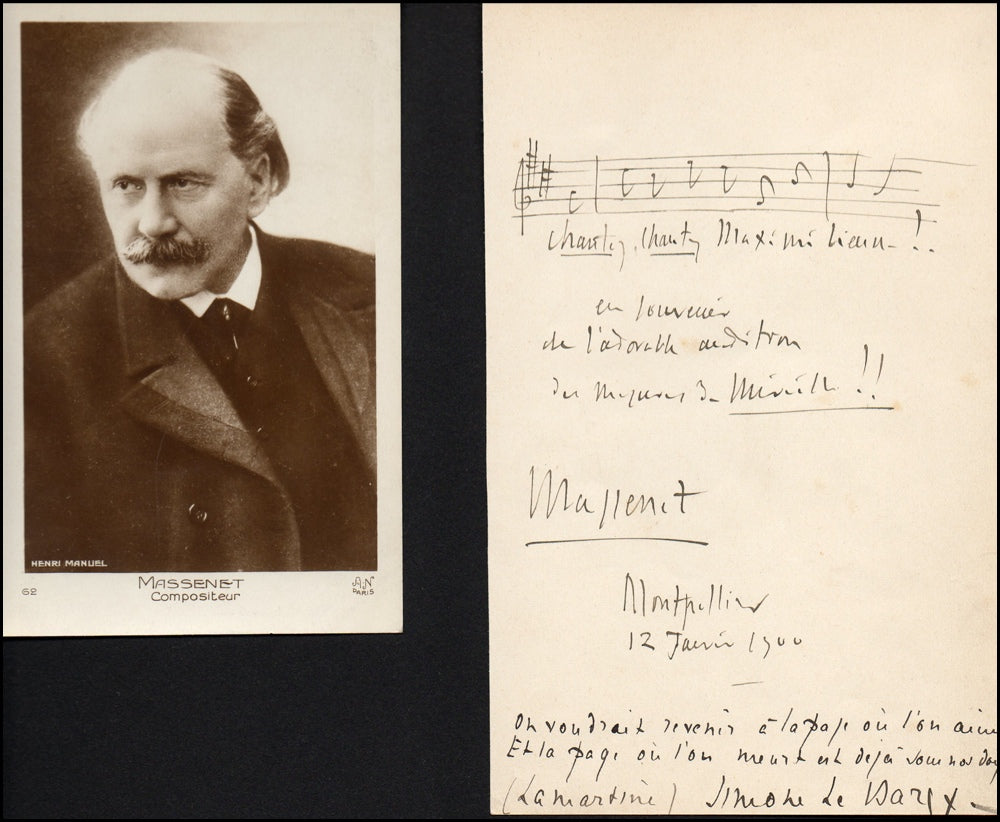 HENRI MANUEL
62
MASSENET
Compositeur
A.N
PARIS
Chantez, Chantez Maximilienne !..
en souvenir
de l'adorable audition
de Mireille !!
Massenet
Montpellier
12 Janvier 1900
On voudrait revenir à la page où l'on aime
Et la page où l'on meurt est dejà sous nos
(Lamartine) Simone Le Bargy.